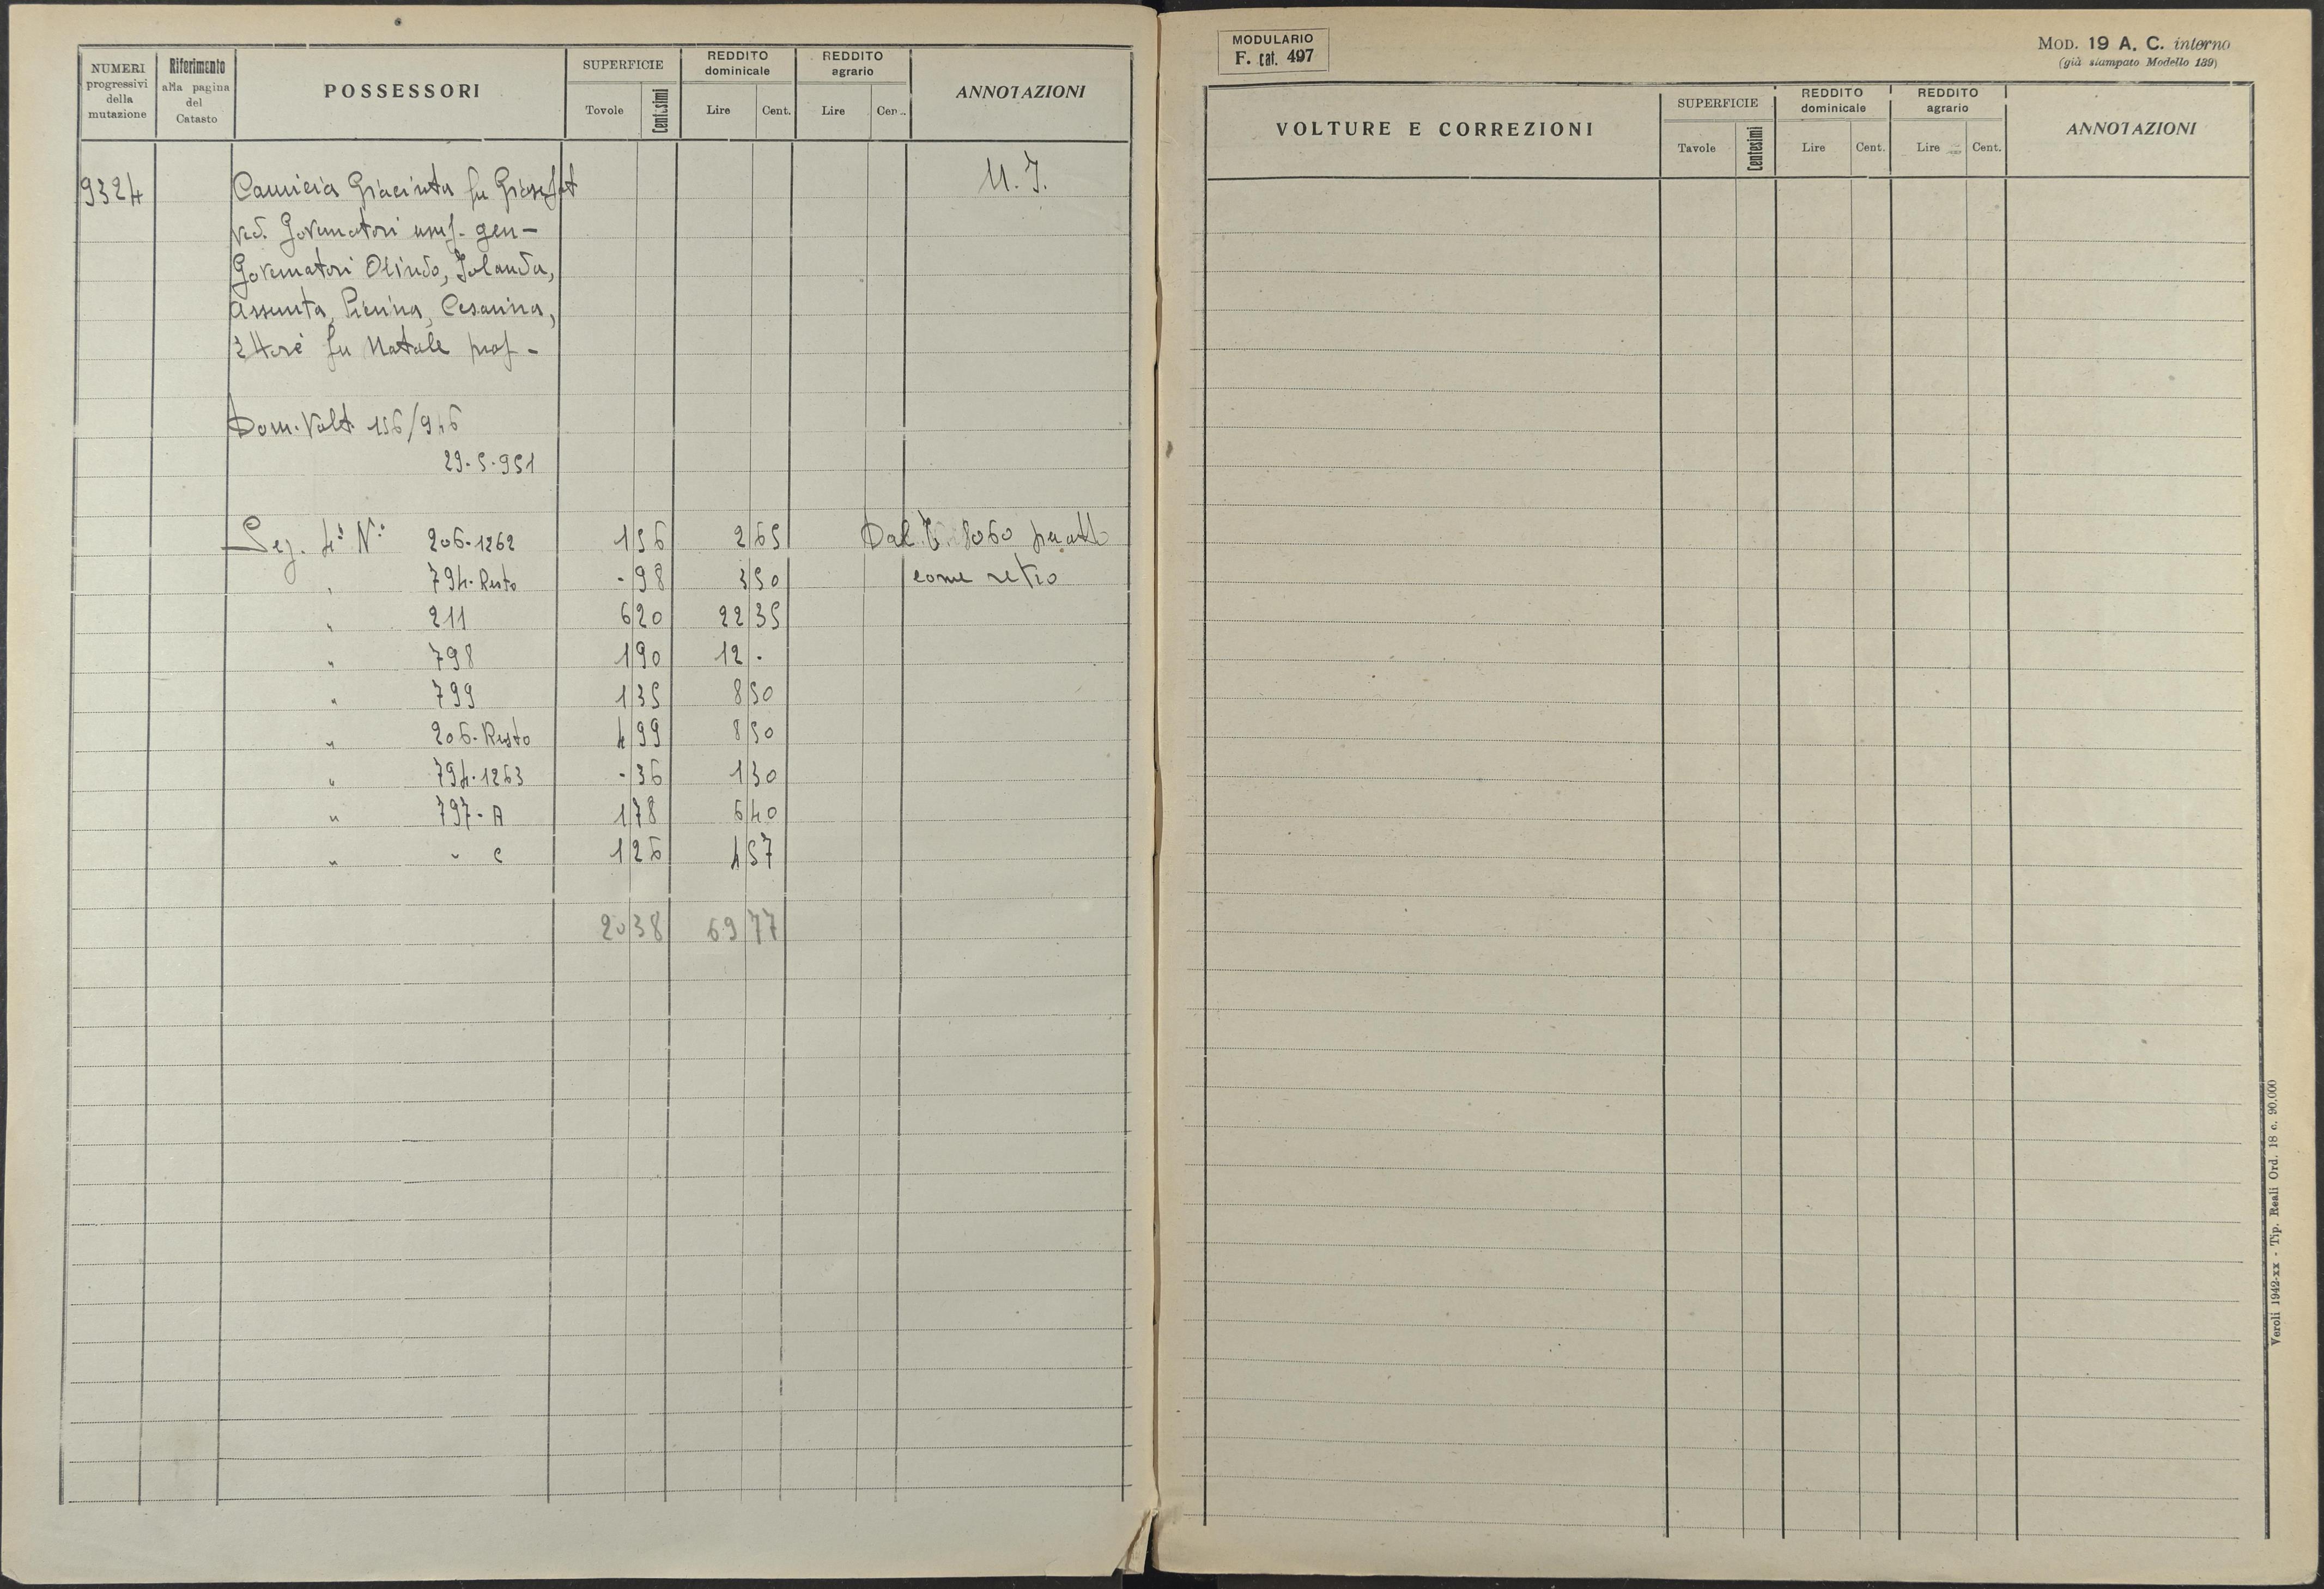 NUMERI progressivi della mutazione
Riferimento alla pagina del Catasto
POSSESSORI
SUPERFICIE
Tovole Centesimi
REDDITO dominicale
Lire Cent.
REDDITO agrario
Lire Cen..
ANNOTAZIONI
9324 Camicia Giacinta fu Giosafat U. I.
ved. Governatori usuf. gen-
Governatori Olindo, Iolanda,
Assunta, Pierina, Cesarina,
Ettore fu Natale prop-
Dom. Volt. 156/946
29-5-951
Sez. 4ª Nº 206-1262 1 56 2 65 Dal 8060
" 794-Resto - 98 3 50 come retro
" 211 6 20 22 35
" 798 1 90 12 -
" 799 1 35 8 50
" 206-Resto 4 99 8 50
" 794-1263 - 36 1 30
" 797-A 1 78 6 40
" " C 1 26 4 57
20 38 69 77
MODULARIO
F. cat. 497
MOD. 19 A. C. interno
(già stampato Modello 189)
VOLTURE E CORREZIONI
SUPERFICIE
Tavole Centesimi
REDDITO dominicale
Lire Cent.
REDDITO agrario
Lire Cent.
ANNOTAZIONI
Veroli 1942-xx - Tip. Reali Ord. 18 c. 90.000